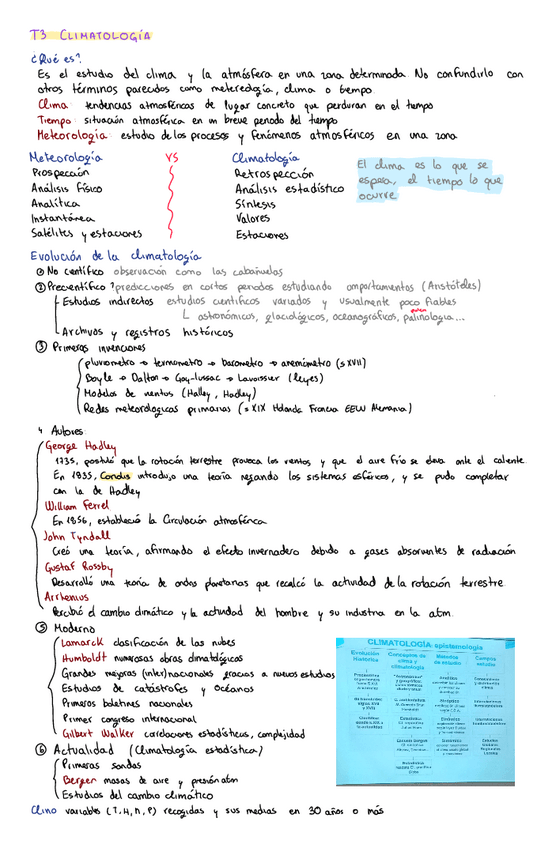 T3 CLIMATOLOGÍA
¿Qué es?
Es el estudio del clima y la atmósfera en una zona determinada. No confundirlo con
otros términos parecidos como meteredogía, clima o tiempo
Clima: tendencias atmosféricas de lugar concreto que perduran en el tiempo
Tiempo: situación atmosférica en un breve periodo del tiempo
Meteorología: estudio de los procesos y fenómenos atmosféricos en una zona
Meteorología VS Climatología
Prospección Retrospección
Análisis físico Análisis estadístico
Analítica Síntesis
Instantánea Valores
Satélites y estaciones Estaciones
El clima es lo que se
espera, el tiempo lo que
ocurre
Evolución de la climatología
① No científico observación como las cabañuelas
② Precientífico predicciones en cortos periodos estudiando comportamientos (Aristóteles)
Estudios indirectos estudios científicos variados y usualmente poco fiables
astronómicos, glaciológicos, oceanográficos, palinología...
Archivos y registros históricos
③ Primeras invenciones
pluviometro → termometro → barometro → anemómetro (s XVII)
Boyle → Dalton → Gay-lussac → Lavoissier (leyes)
Modelos de vientos (Halley, Hadley)
Redes meteorologicas primarias (s XIX Holanda Francia EEUU Alemania)
4 Autores:
George Hadley
1735, postuló que la rotación terrestre provoca los vientos y que el aire frío se eleva ante el caliente.
En 1835, Coriolis introdujo una teoría negando los sistemas esféricos, y se pudo completar
con la de Hadley
William Ferrel
En 1856, estableció la Circulación atmosférica
John Tyndall
Creó una teoría, afirmando el efecto invernadero debido a gases absorventes de radiación
Gustaf Rossby
Desarrolló una teoría de ondas planetarias que recalcó la actividad de la rotación terrestre.
Arrhenius
Percibió el cambio climático y la actividad del hombre y su industria en la atm.
⑤ Moderno
Lamarck clasificación de las nubes
Humboldt numerosas obras climatológicas
Grandes mejoras (inter)nacionales gracias a nuevos estudios
Estudios de catástrofes y océanos
Primeros boletines nacionales
Primer congreso internacional
Gilbert Walker correlaciones estadísticas, complejidad
⑥ Actualidad (Climatología estadística)
Primeras sondas
Berger masas de aire y presión atm
Estudios del cambio climático
Clino variables (T, H, n, P) recogidas y sus medias en 30 años o más
CLIMATOLOGÍA epistemología
Evolución Histórica
Conceptos de clima y climatología
Métodos de estudio
Campos de estudio